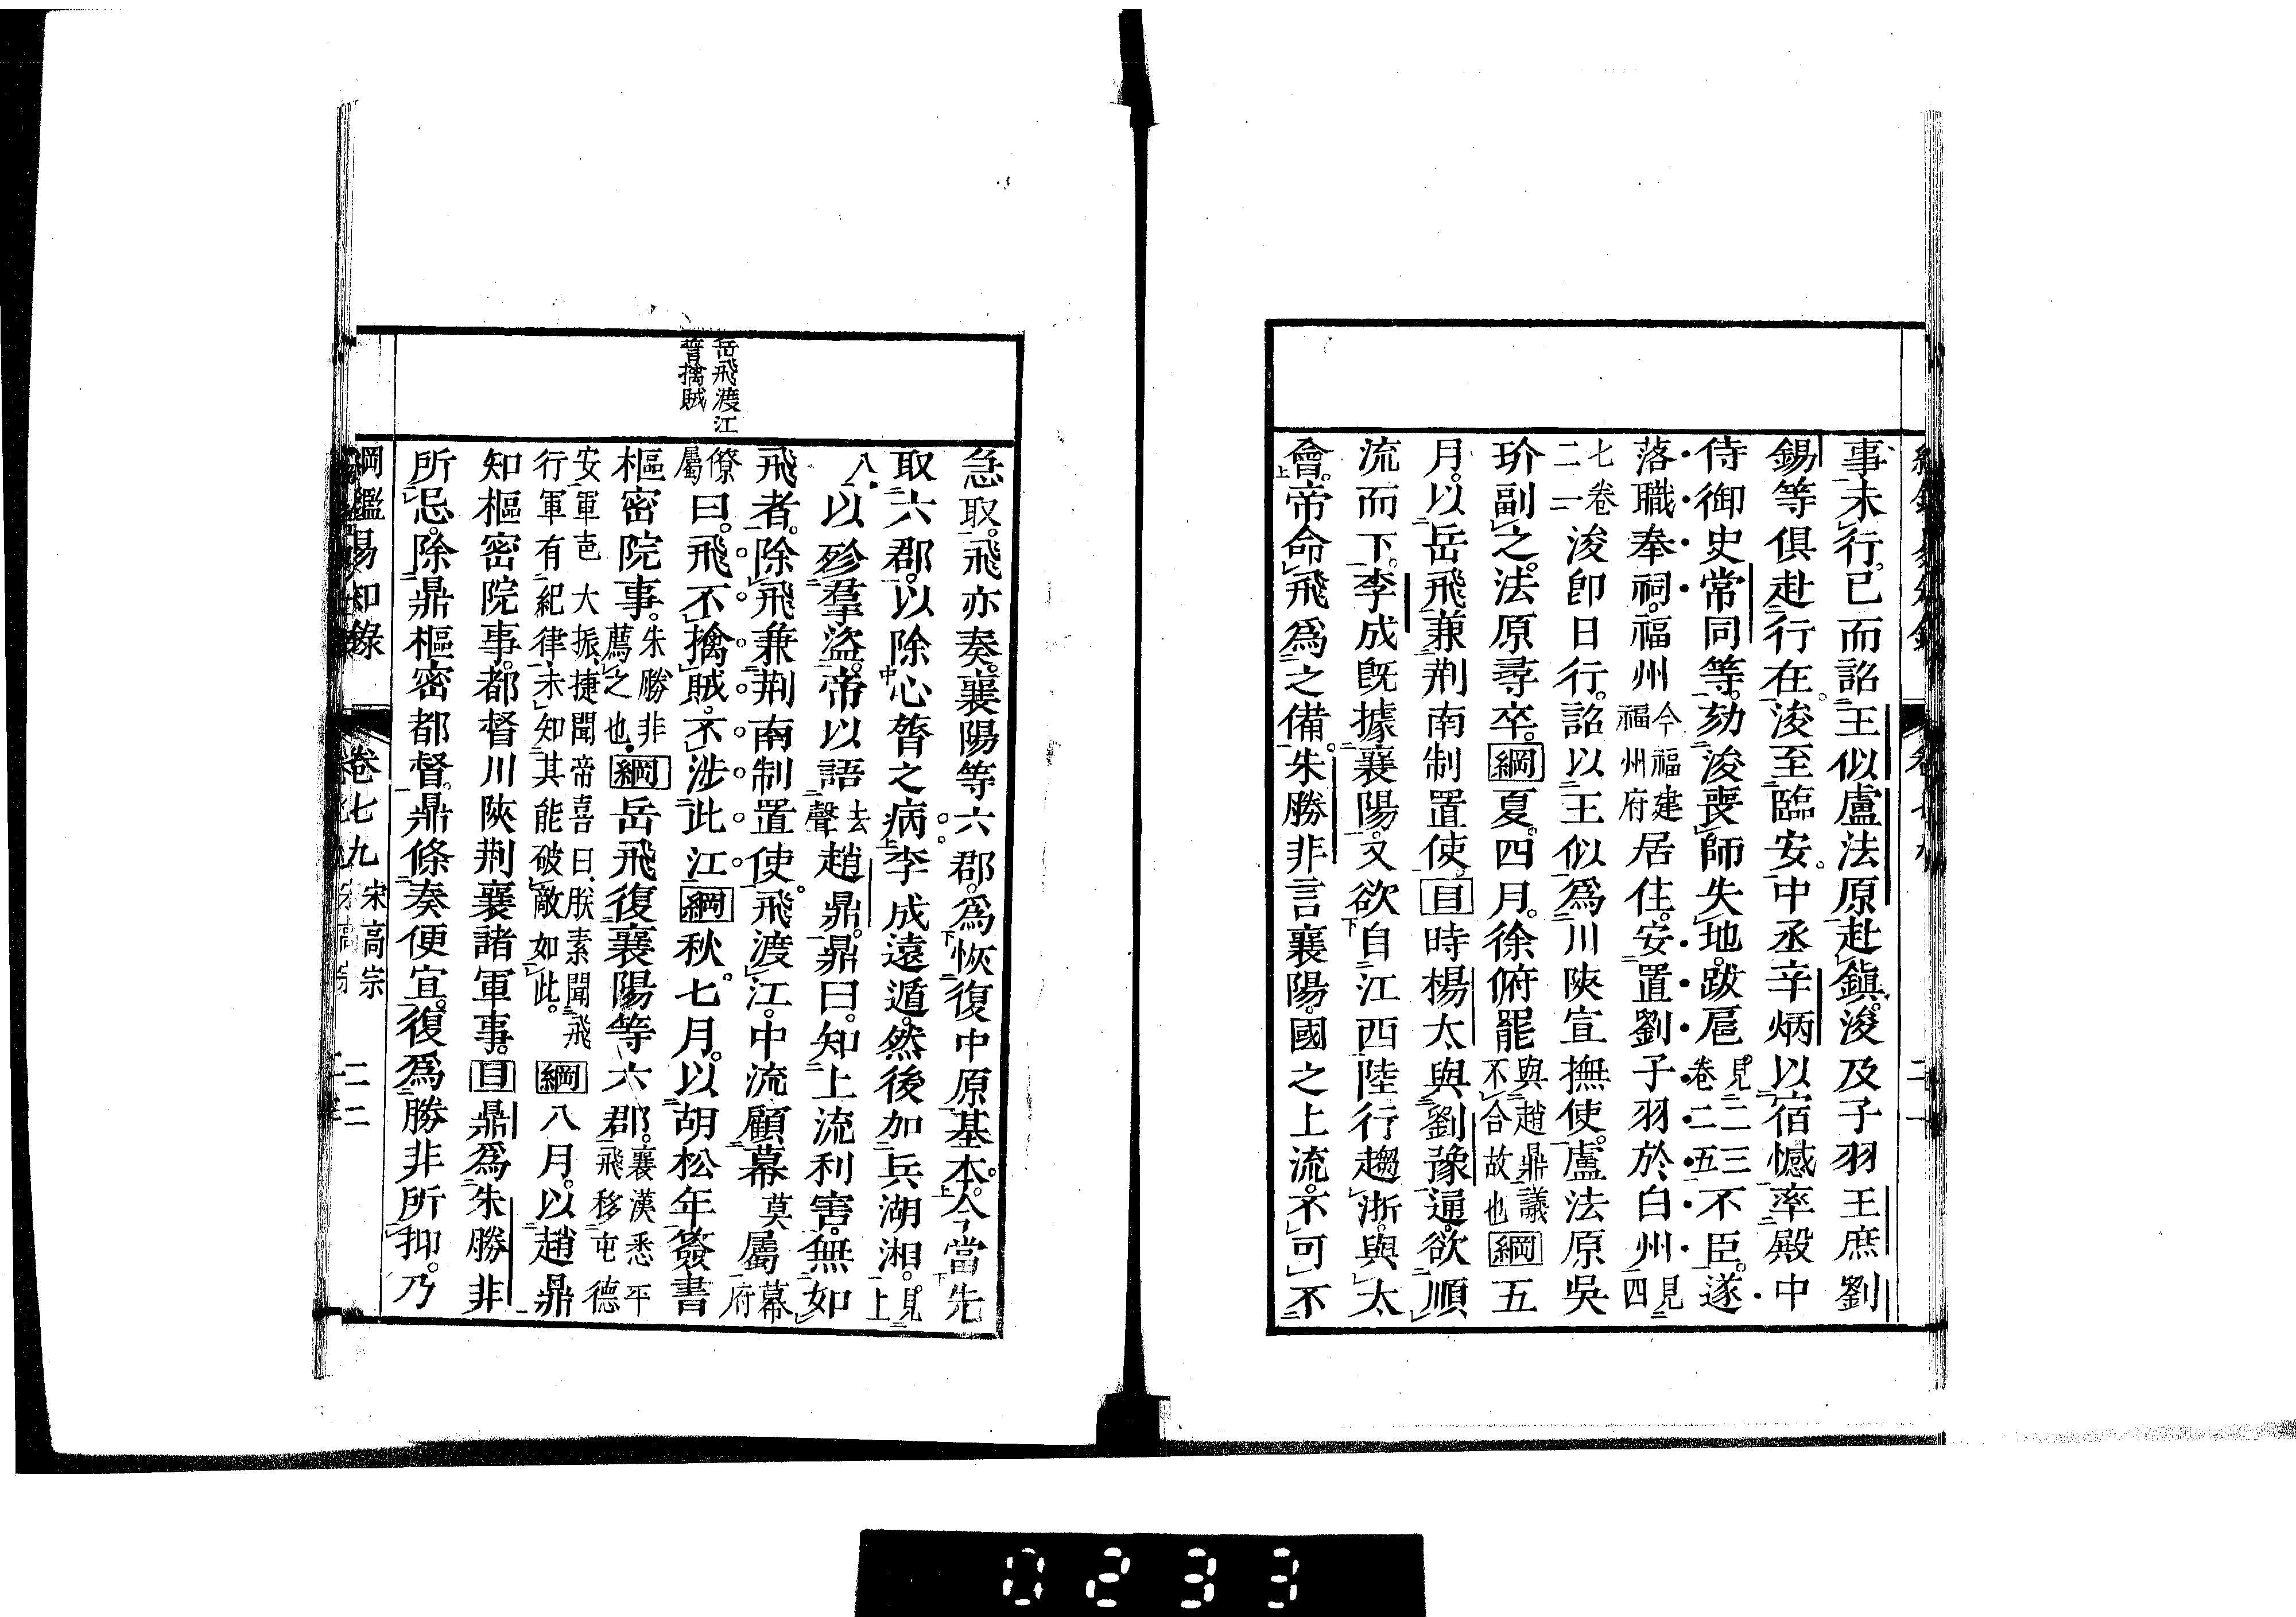 事未行已而詔王似盧法原赴鎭浚及子羽王庶劉
錫等俱赴行在浚至臨安中丞辛炳以宿憾率殿中
侍御史常同等劾浚喪師失地跋扈見二三卷二五不臣遂
落職奉祠福州今福建福州府居住安置劉子羽於白州見四
七卷二一浚卽日行詔以王似爲川陝宣撫使盧法原吳
玠副之法原尋卒綱夏四月徐俯罷與趙鼎議不合故也綱五
月以岳飛兼荆南制置使目時楊太與劉豫通欲順
流而下李成旣據襄陽又欲自江西陸行趨浙與太
會帝命飛爲之備朱勝非言襄陽國之上流不可不
急取飛亦奏襄陽等六郡爲恢復中原基本今當先
取六郡以除心膂之病李成遠遁然後加兵湖湘見上
八以殄羣盜帝以語去聲趙鼎鼎曰知上流利害無如
岳飛渡江
誓擒賊
飛者除飛兼荆南制置使飛渡江中流顧幕莫屬幕府
僚屬曰飛不擒賊不涉此江綱秋七月以胡松年簽書
樞密院事朱勝非薦之也綱岳飛復襄陽等六郡襄漢悉平飛移屯德
安軍声大振捷聞帝喜曰朕素聞飛行軍有紀律未知其能破敵如此綱八月以趙鼎
知樞密院事都督川陝荆襄諸軍事目鼎爲朱勝非
所忌除鼎樞密都督鼎條奏便宜復爲勝非所抑乃
綱鑑易知錄 卷七九 宋高宗 二二
0233